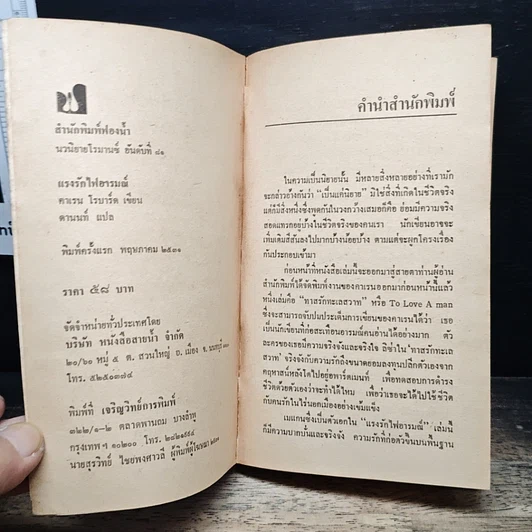 สำนักพิมพ์ฟองน้ำ
นวนิยายโรมานซ์ อันดับที่ ๘๑
แรงรักไฟอารมณ์
คาเรน โรบาร์ด เขียน
ดานนท์ แปล
พิมพ์ครั้งแรก พฤษภาคม ๒๕๓๑
ราคา ๕๘ บาท
จัดจำหน่ายทั่วประเทศโดย
บริษัท หนังสือสายน้ำ จำกัด
๒๐/๖๐ หมู่ ๕ ต. สวนใหญ่ อ. เมือง จ. นนทบุรี
โทร. ๕๒๕๐๓๗๔
พิมพ์ที่ เจริญวิทย์การพิมพ์
๓๒๒/๑-๒ ตลาดพานถม บางลำพู
กรุงเทพฯ ๑๐๒๐๐ โทร.
นายสุรวิทย์ ไชยพงศาวลี ผู้พิมพ์ผู้โฆษณา ๒๕๓๑
คำนำสำนักพิมพ์
ในความเป็นนิยายนั้น มีหลายสิ่งหลายอย่างที่เรามัก
จะกล่าวอ้างกันว่า "เป็นแค่นิยาย" มิใช่สิ่งที่เกิดในชีวิตจริง
แต่ก็มีสิ่งหนึ่งซึ่งพูดกันในวงกว้างเสมอก็คือ ย่อมมีความจริง
สอดแทรกอยู่บ้างในชีวิตจริงของคนเรา นักเขียนอาจจะ
เพิ่มเติมสีสันลงไปมากบ้างน้อยบ้าง ตามแต่จะผูกโครงเรื่อง
กันประกอบเข้ามา
ก่อนหน้าที่หนังสือเล่มนี้จะออกมาสู่สายตาท่านผู้อ่าน
สำนักพิมพ์ได้จัดพิมพ์งานของคาเรนออกมาก่อนหน้านี้แล้ว
หนึ่งเล่มคือ "ทาสรักทะเลสวาท" หรือ To Love A man
ซึ่งจะสามารถจับปมประเด็นการเขียนของคาเรนได้ว่า เธอ
เป็นนักเขียนที่ก่อสะเทือนอารมณ์คนอ่านได้อย่างมาก ตัว
ละครของเธอมีความจริงจังและจริงใจ ลิซ่าใน "ทาสรักทะเล
สวาท" จริงจังกับความรักถึงขนาดยอมลงทุนปลีกตัวเองจาก
คฤหาสน์หลังโตไปอยู่อพาร์ตเมนท์ เพื่อทดสอบการดำรง
ชีวิตด้วยตัวเองว่าจะทำได้ไหม เพื่อว่าเธอจะได้ไปใช้ชีวิต
กับคนรักในไร่นอกเมืองอย่างเข้มแข็ง
เมแกนซึ่งเป็นตัวเอกใน "แรงรักไฟอารมณ์" เล่มนี้
ก็มีความบากบั่นและจริงจัง ความรักที่ก่อตัวขึ้นบนพื้นฐาน